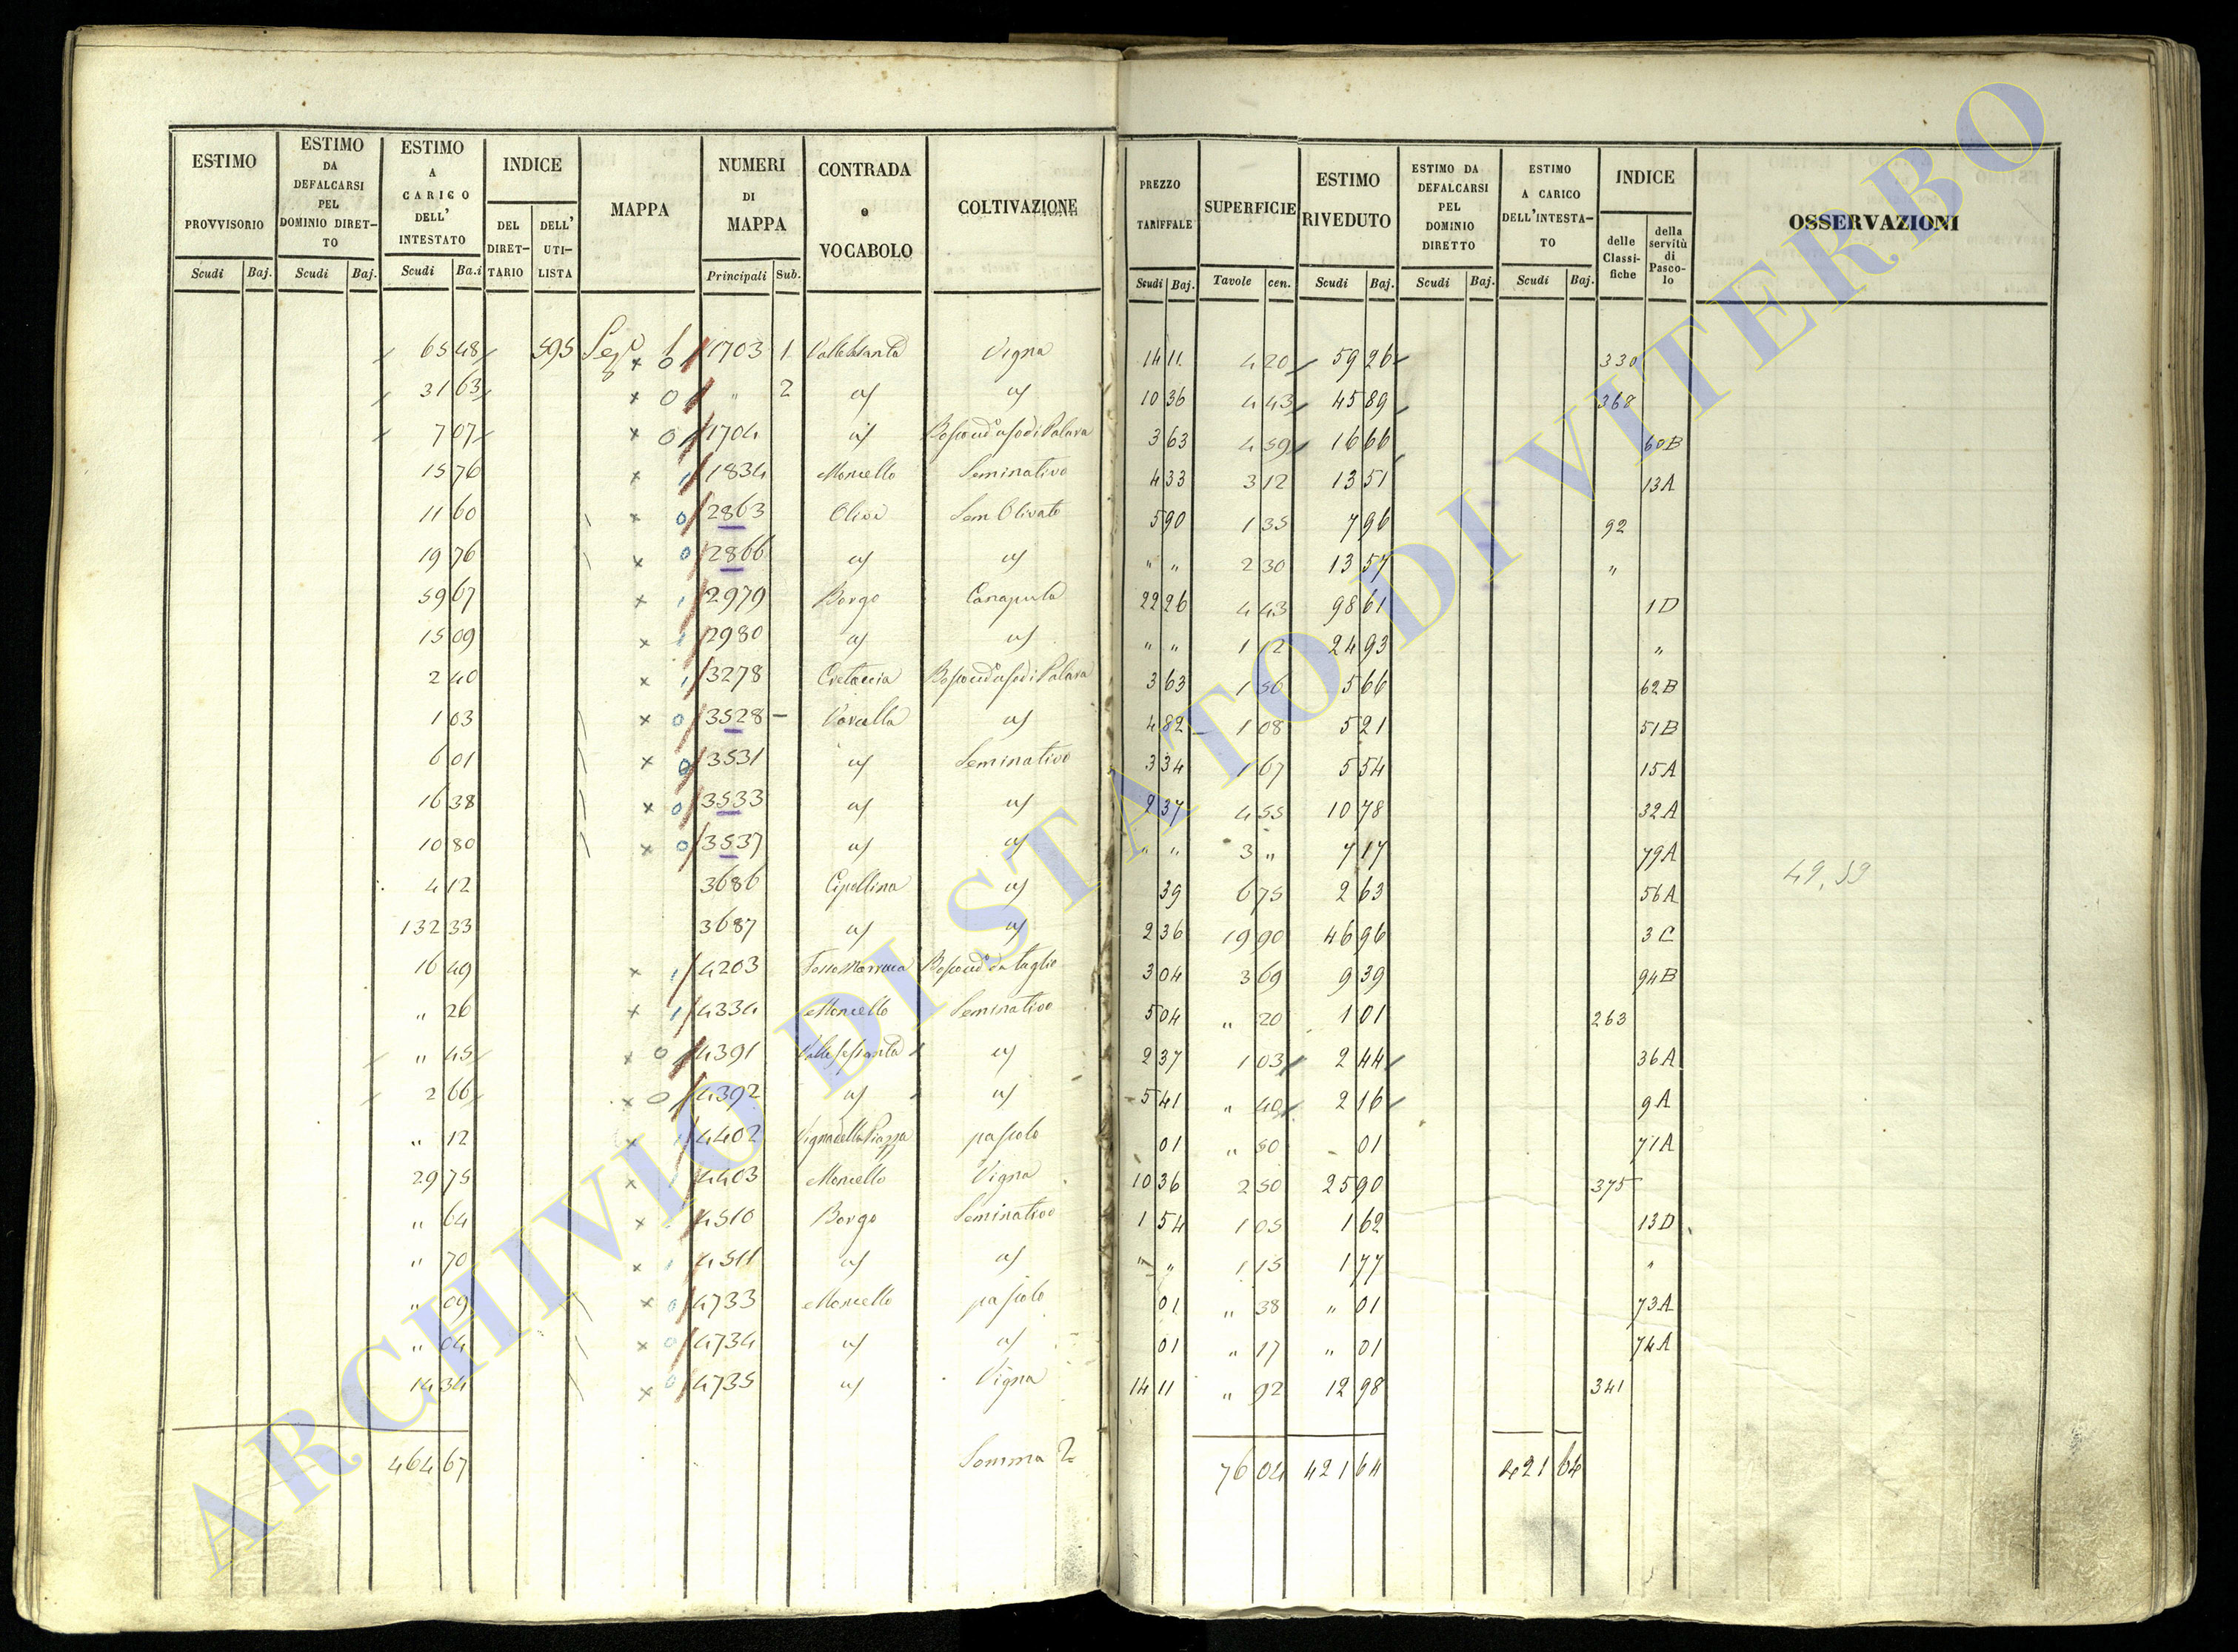 ESTIMO PROVVISORIO | ESTIMO DA DEFALCARSI PEL DOMINIO DIRET-TO | ESTIMO A CARICO DELL' INTESTATO | INDICE | MAPPA | NUMERI DI MAPPA | CONTRADA e VOCABOLO | COLTIVAZIONE | PREZZO TARIFFALE | SUPERFICIE | ESTIMO RIVEDUTO | ESTIMO DA DEFALCARSI PEL DOMINIO DIRETTO | ESTIMO A CARICO DELL'INTESTA-TO | INDICE | OSSERVAZIONI
DEL DIRET-TARIO | DELL' UTI-LISTA | delle Classi-fiche | della servitù di Pasco-lo
Scudi Baj. | Scudi Baj. | Scudi Ba.i | Principali | Sub. | Scudi Baj. | Tavole cen. | Scudi Baj. | Scudi Baj. | Scudi Baj.
65 48 595 1703 1 Vigna 14 11 4 20 59 26 330
31 63 " 2 id id 10 36 4 43 45 89 368
7 07 1704 id 3 63 4 59 16 66 60B
15 76 1834 Moncello Seminativo 4 33 3 12 13 51 13A
11 60 2863 Olivi Sem Olivato 5 90 1 35 7 96 92
19 76 2866 id id " " 2 30 13 57 "
59 67 2979 Borgo Canapula 22 26 4 43 98 61 1D
15 09 2980 id id " " 1 12 24 93 "
2 40 3278 3 63 1 56 5 66 62B
1 03 3528 - id 4 82 1 08 5 21 51B
6 01 3531 id Seminativo 3 34 1 67 5 54 15A
16 38 3533 id id 2 37 4 55 10 78 32A
10 80 3537 id id " " 3 " 7 17 79A
4 12 3686 Cipollina id 39 6 75 2 63 56A 49,59
132 33 3687 id id 2 36 19 90 46 96 3C
16 49 4203 3 04 3 09 9 39 94B
" 26 4334 Moncello Seminativo 5 04 " 20 1 01 263
" 45 4391 id 2 37 1 03 2 44 36A
2 66 4392 id id 5 41 " 40 2 16 9A
" 12 4402 Vigna della Piazza pascolo 01 " 50 01 71A
29 75 4403 Moncello Vigna 10 36 2 50 25 90 375
" 64 4510 Borgo Seminativo 1 54 1 05 1 62 13D
" 70 4511 id id " " 1 15 1 77 "
" 09 4733 Moncello pascolo 01 " 38 " 01 73A
" 04 4734 id id 01 " 17 " 01 74A
14 34 4735 id Vigna 14 11 " 92 12 98 341
464 67 Somma 76 04 421 64 421 64
ARCHIVIO DI STATO DI VITERBO